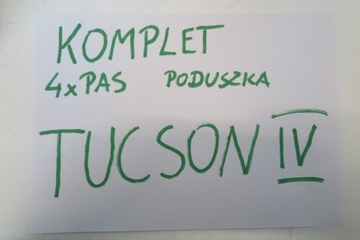 KOMPLET
4xPAS PODUSZKA
TUCSON IV